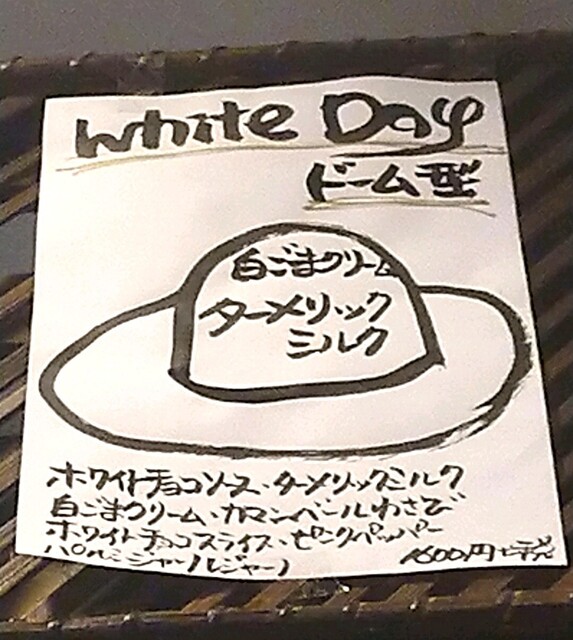 white Day
ドーム型
白ごまクリーム
ターメリック
ミルク
ホワイトチョコソース・ターメリックミルク
白ごまクリーム・カマンベールわさび
ホワイトチョコスライス・ピンクペッパー
パルミジャーノレジャーノ
1600円